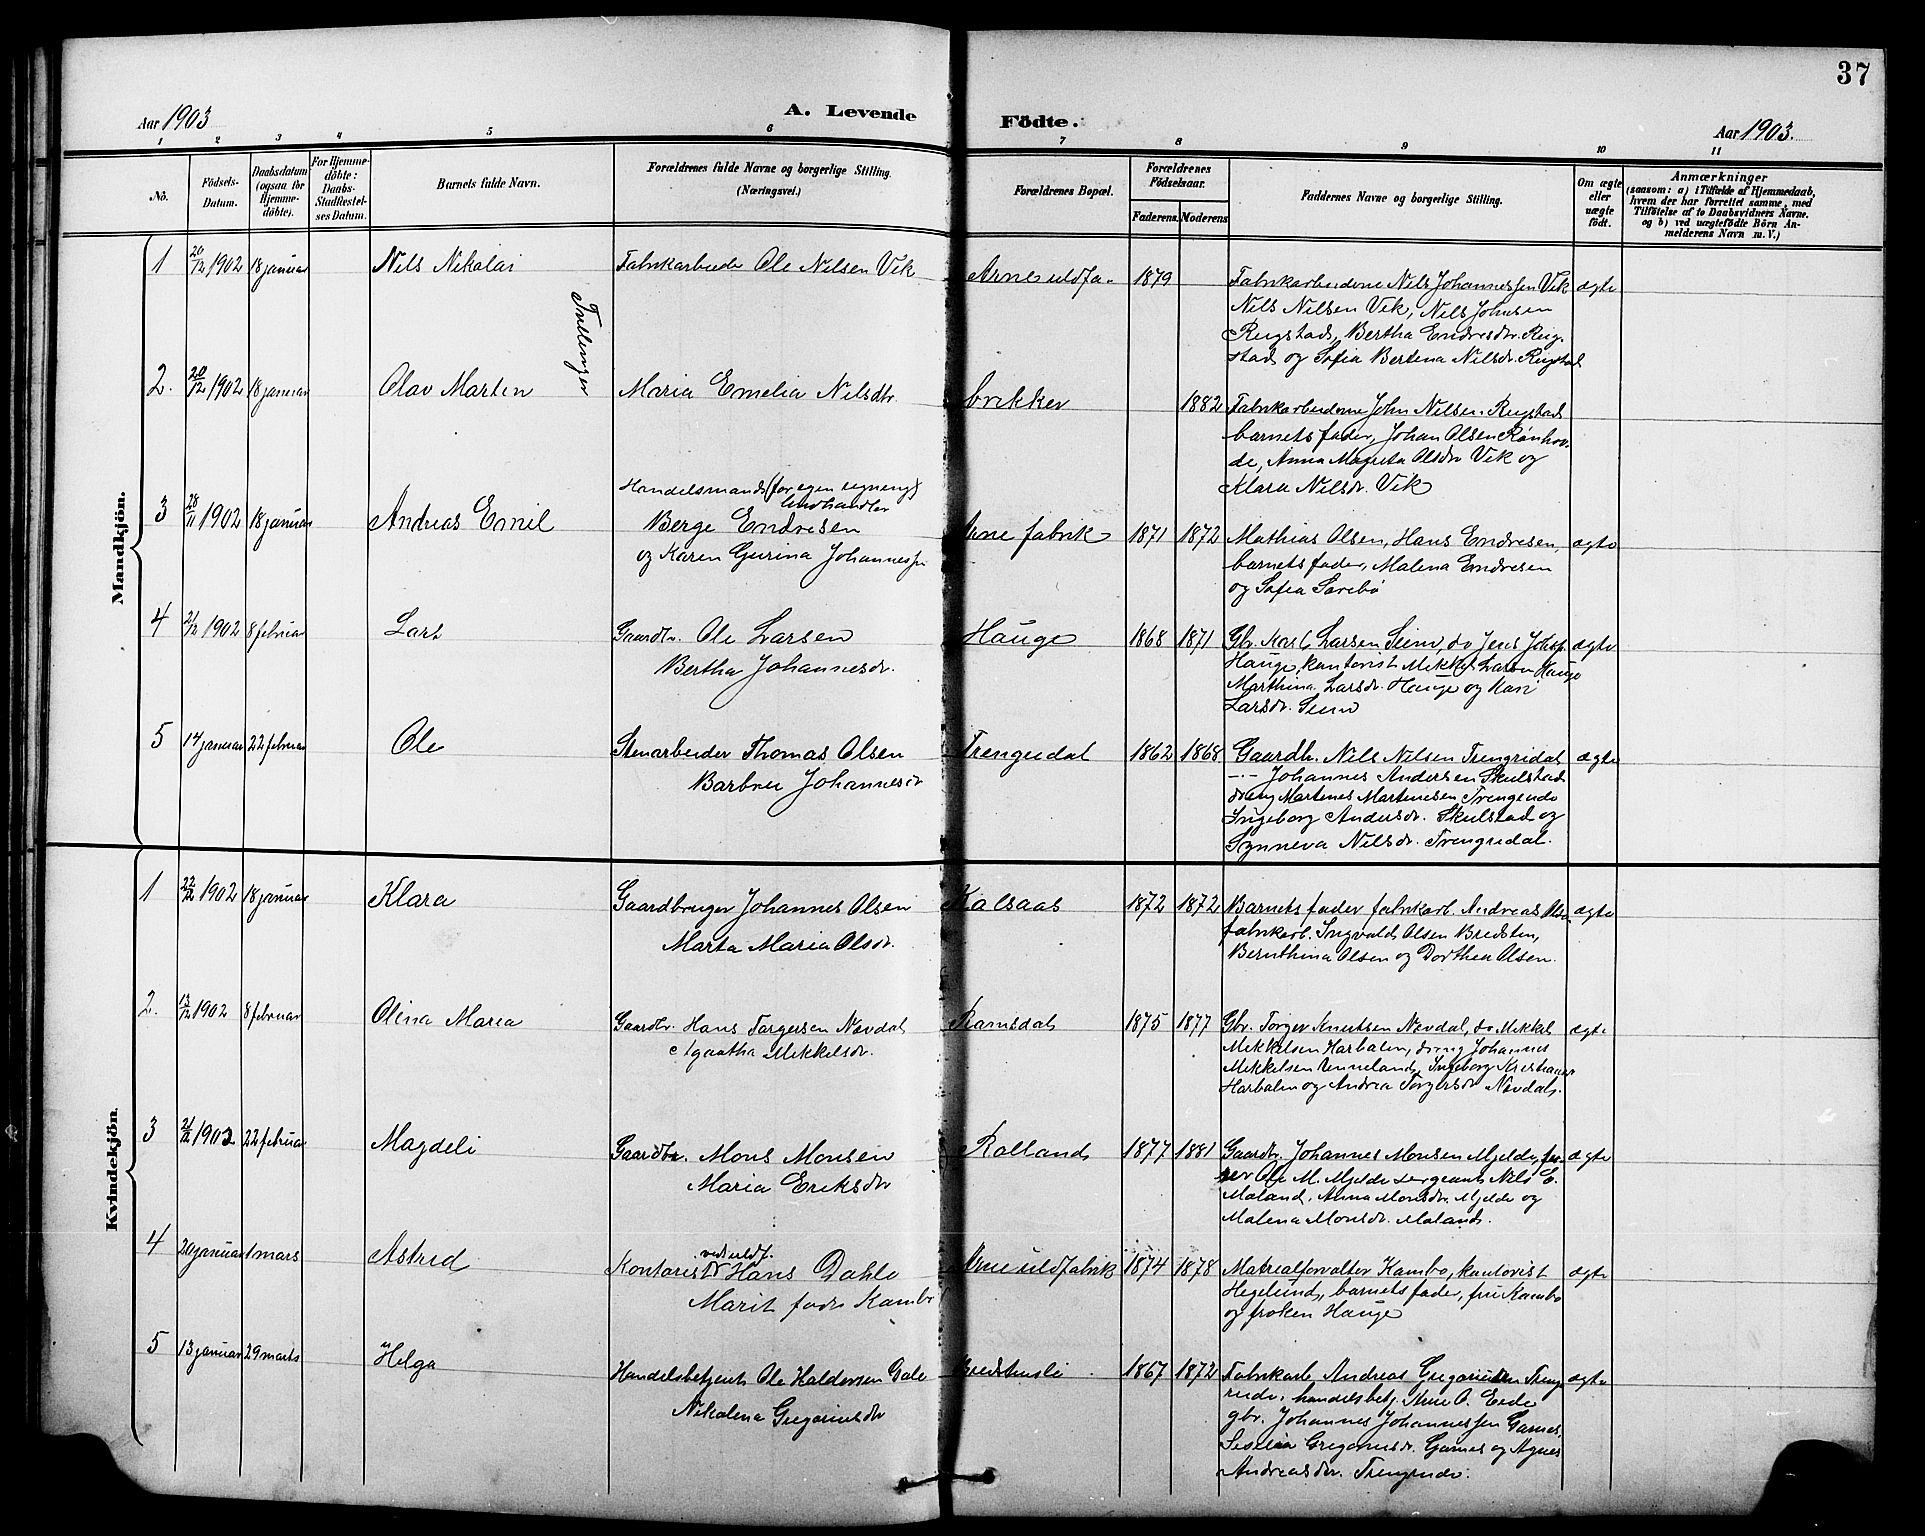 37
Aar 1903
A. Levende Födte.
Aar 1903.
1 2 3 4 5 6 7 8 9 10 11
No.
Födsels-Datum.
Daabsdatum (ogsaa for Hjemme-döbte).
For Hjemme-döbte: Daabs-Stadfæstel-ses Datum.
Barnets fulde Navn.
Forældrenes fulde Navne og borgerlige Stilling. (Næringsvei.)
Forældrenes Bopæl.
Forældrenes Födselsaar.
Faderens. Moderens.
Faddernes Navne og borgerlige Stilling.
Om ægte eller uægte födt.
Anmærkninger
(saasom: a) i Tilfælde af Hjemmedaab, hvem der har forrettet samme, med Tilföielse af to Daabsvidners Navne. og b) ved uægtefödte Börn An-melderens Navn m. V.)
Mandkjön.
1 20/12 1902 18 januar Nils Nikolai Fabrikarbeider Ole Nilsen Vik Arne uldfa- 1879
Fabrikarbeiderne Nils Johannessen Vik ægte
Nils Nilsen Vik, Nils Johnsen
Rugstad, Bertha Endresdtr. Rug-
stad og Sofia Bertina Nilsdr. Rugstad
Tvillinger
2. 20/12 1902 18 januar Olav Martin Maria Emelia Nilsdtr. brikker 1882
Fabrikarbeiderne John Nilsen Rugstad
barnets fader, Johan Olsen Rønhov-
de, Anna Magreta Olsdr Vik og
Klara Nilsdr. Vik
3 28/11 1902 18 januar Andreas Emil Handelsmand (for egen regning)
Berge Endresen
og Karen Gurina Johannessen
Arne fabrik 1871 1872
Mathias Olsen, Hans Endresen, ægte
barnets fader, Malena Endresen
og Sofia Sørebø
4 21/12 1902 8 februar Lars Gaardbr. Ole Larsen
Bertha Johannesdr.
Hauge 1868 1871
Gbr. Karl Larsen Seim, do Jens Johsp. ægte
Hauge, kontorist Mikkel Larsen Hauge
Marthina Larsdr. Hauge og Kari
Larsdr. Seim
5 14 januar 22 februar Ole Stenarbeider Thomas Olsen
Barbru Johannesdr
Trengeidal 1862 1868
Gaardb. Nils Nilsen Trengridal ægte
-"- Johannes Andersen Skulstad
dreng Martines Martinesen Trengeido
Ingeborg Andersdr. Skulstad og
Synneva Nilsdr. Trengridal.
Kvindekjön.
1 22/12 1902 18 januar Klara Gaardbruger Johannes Olsen
Marta Maria Olsdr.
Kalsaas 1872 1872
Barnets fader fabrikarb. Andreas Olsen ægte
fabrikarb. Ingvald Olsen Bredsten,
Bernthina Olsen og Dorthea Olsen.
2. 13/12 1902 8 februar Olina Maria Gaardbr. Hans Torgersen Navdal
Agaatha Mikkelsdr.
Ramsdal 1875 1877
Gbr. Torger Knutsen Navdal, do Mikkel ægte
Mikkelsen Harbalen, dreng Johannes
Mikkelsen Unneland, Ingeborg
Harbalen og Andrea Torgersdr Navdal.
3 21/12 1902 22 februar Magdeli Gaardbr. Mons Monsen
Maria Eriksdr
Rolland 1877 1881
Gaardbr. Johannes Monsen Mjelde, ægte
Ole M. Mjelde sergeant Nils E.
Maland, Anna Monsdr. Mjelde og
Malena Monsdr. Maland.
4 20 januar 1 mars Astrid Kontorist ved uldf. Hans Dahle
Marit født Kambo
Arne uldfabrik 1874 1878
Matrealforvalter Kambo, kontorist ægte
Hegelund, barnets fader, fru Kambo
og frøken Hauge
5 13 januar 29 marts Helga Handelsbetjent Ole Haldorsen Dale
Nikolena Gregoriusdr
1867 1872
Fabrikarb. Andreas Gregoriussen Treng- ægte
reide, handelsbetj. Arne O. Eide
gbr. Johannes Johannessen Garnes,
Gregoriusdr. Garnes og Agnes
Andreasdtr. Trengreide.